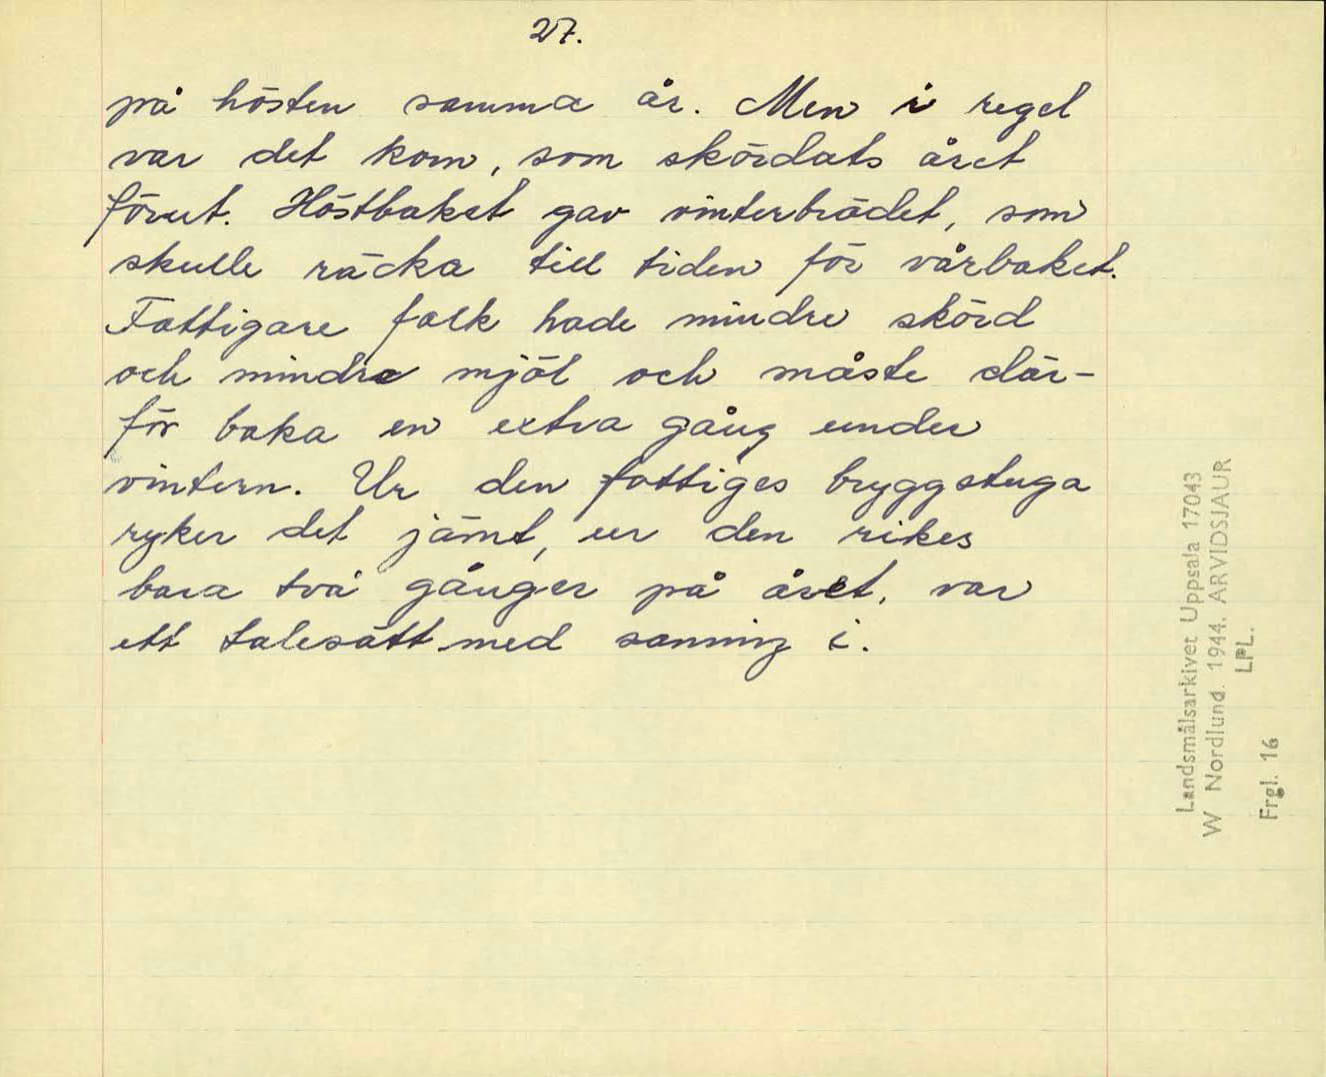 27.
på hösten samma år. Men i regel
var det korn, som skördats året
förut. Höstbaket gav vinterbrödet, som
skulle räcka till tiden för vårbaket.
Fattigare folk hade mindre skörd
och mindre mjöl och måste där-
för baka en extra gång under
vintern. Ur den fattiges bryggstuga
ryker det jämt, ur den rikes
bara två gånger på året, var
ett talesätt med sanning i.
Landsmålsarkivet Uppsala 17043
W Nordlund. 1944. ARVIDSJAUR
LPL.
Frgl. 16